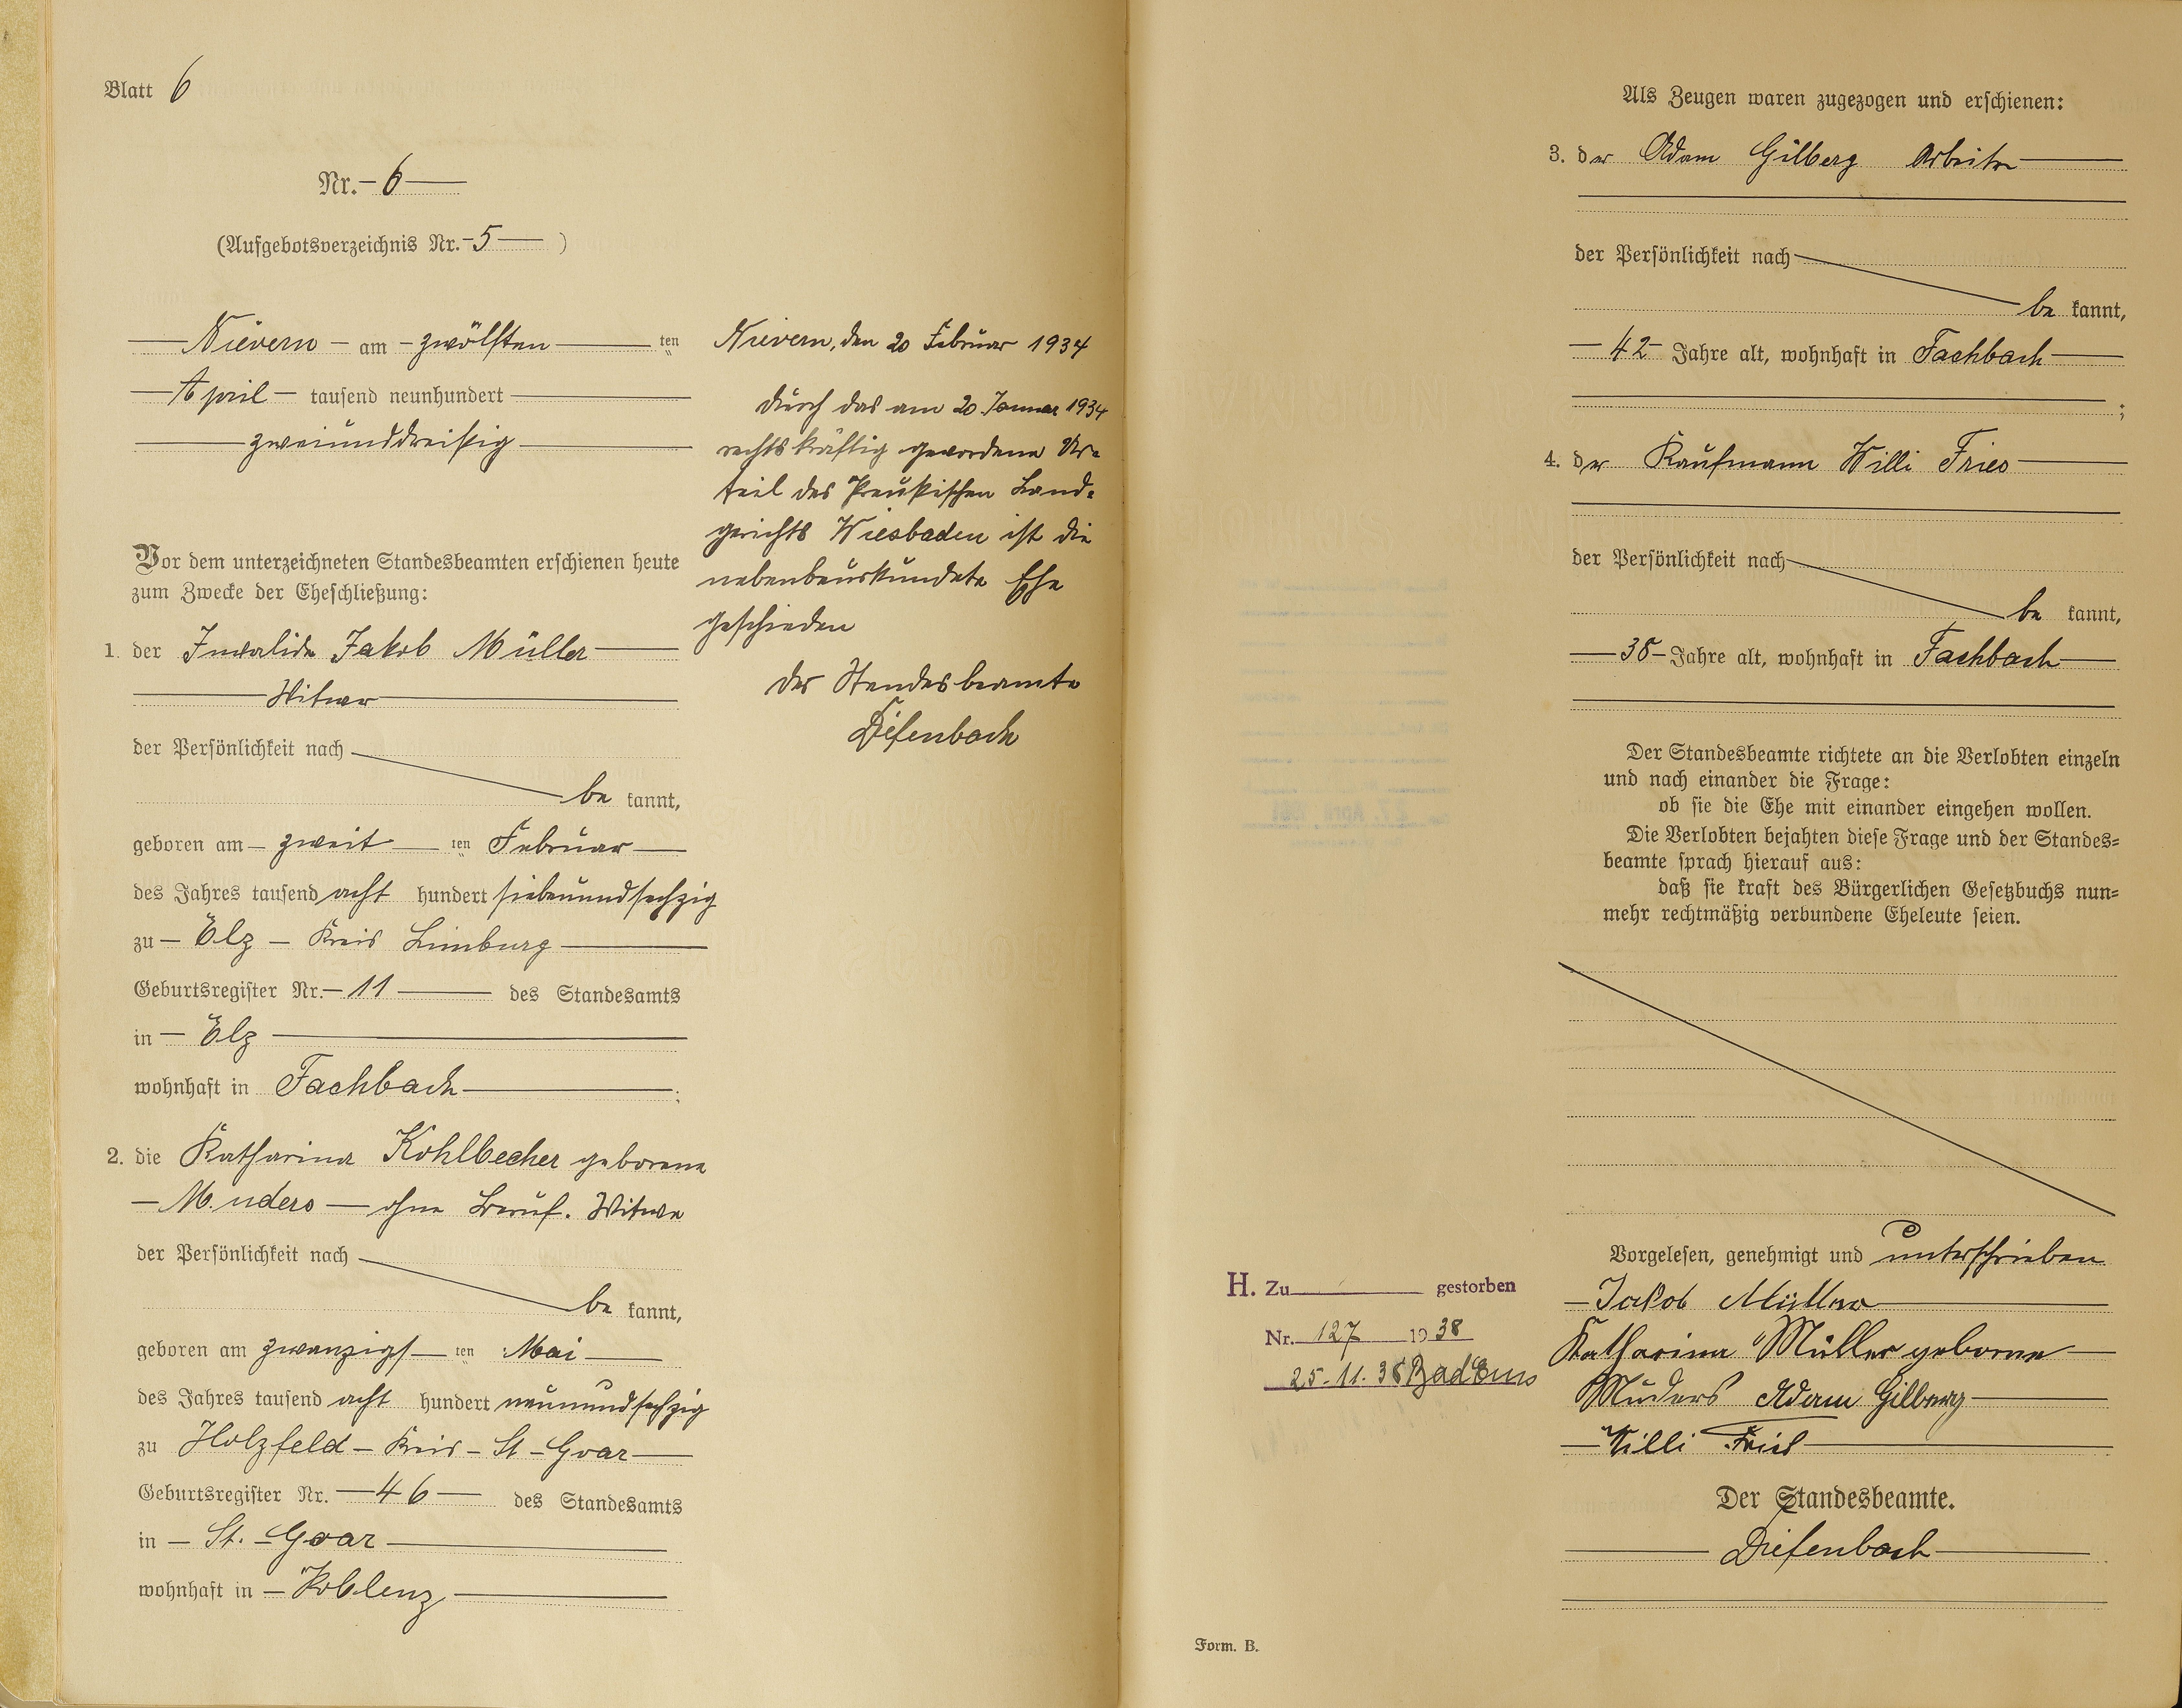 Blatt 6
Nr. 6
(Aufgebotsverzeichnis Nr. 5 )
Nievern am zwölften ten
April tausend neunhundert
zweiunddreißig
Vor dem unterzeichneten Standesbeamten erschienen heute
zum Zwecke der Eheschließung:
1. der Invalide Jakob Müller
Witwer
der Persönlichkeit nach
be kannt,
geboren am zweit ten Februar
des Jahres tausend acht hundert siebenundsechzig
zu Elz Kreis Limburg
Geburtsregister Nr. 11 des Standesamts
in Elz
wohnhaft in Fachbach ;
2. die Katharina Kohlbecher geborene
Muders ohne Beruf. Witwe
der Persönlichkeit nach
be kannt,
geboren am zwanzigst ten Mai
des Jahres tausend acht hundert neunundsechzig
zu Holzfeld Kreis St Goar
Geburtsregister Nr. 46 des Standesamts
in St. Goar
wohnhaft in Koblenz
Nievern, den 20 Februar 1934
Durch das am 20. Januar 1934
rechtskräftig gewordene Ur-
teil des Preußischen Land-
gerichts Wiesbaden ist die
nebenbeurkundete Ehe
geschieden
Der Standesbeamte
Diefenbach
Als Zeugen waren zugezogen und erschienen:
3. der Adam Gilberg Arbeiter
der Persönlichkeit nach
be kannt,
42 Jahre alt, wohnhaft in Fachbach
;
4. der Kaufmann Willi Fries
der Persönlichkeit nach
be kannt,
38 Jahre alt, wohnhaft in Fachbach
Der Standesbeamte richtete an die Verlobten einzeln
und nach einander die Frage:
ob sie die Ehe mit einander eingehen wollen.
Die Verlobten bejahten diese Frage und der Standes-
beamte sprach hierauf aus:
daß sie kraft des Bürgerlichen Gesetzbuchs nun-
mehr rechtmäßig verbundene Eheleute seien.
Vorgelesen, genehmigt und unterschrieben
Jakob Müller
Katharina Müller geborne
Muders Adam Gilberg
Willi Fries
Der Standesbeamte.
Diefenbach
H. Zu gestorben
Nr. 127 19 38
25.11.38 Bad Ems
Form. B.